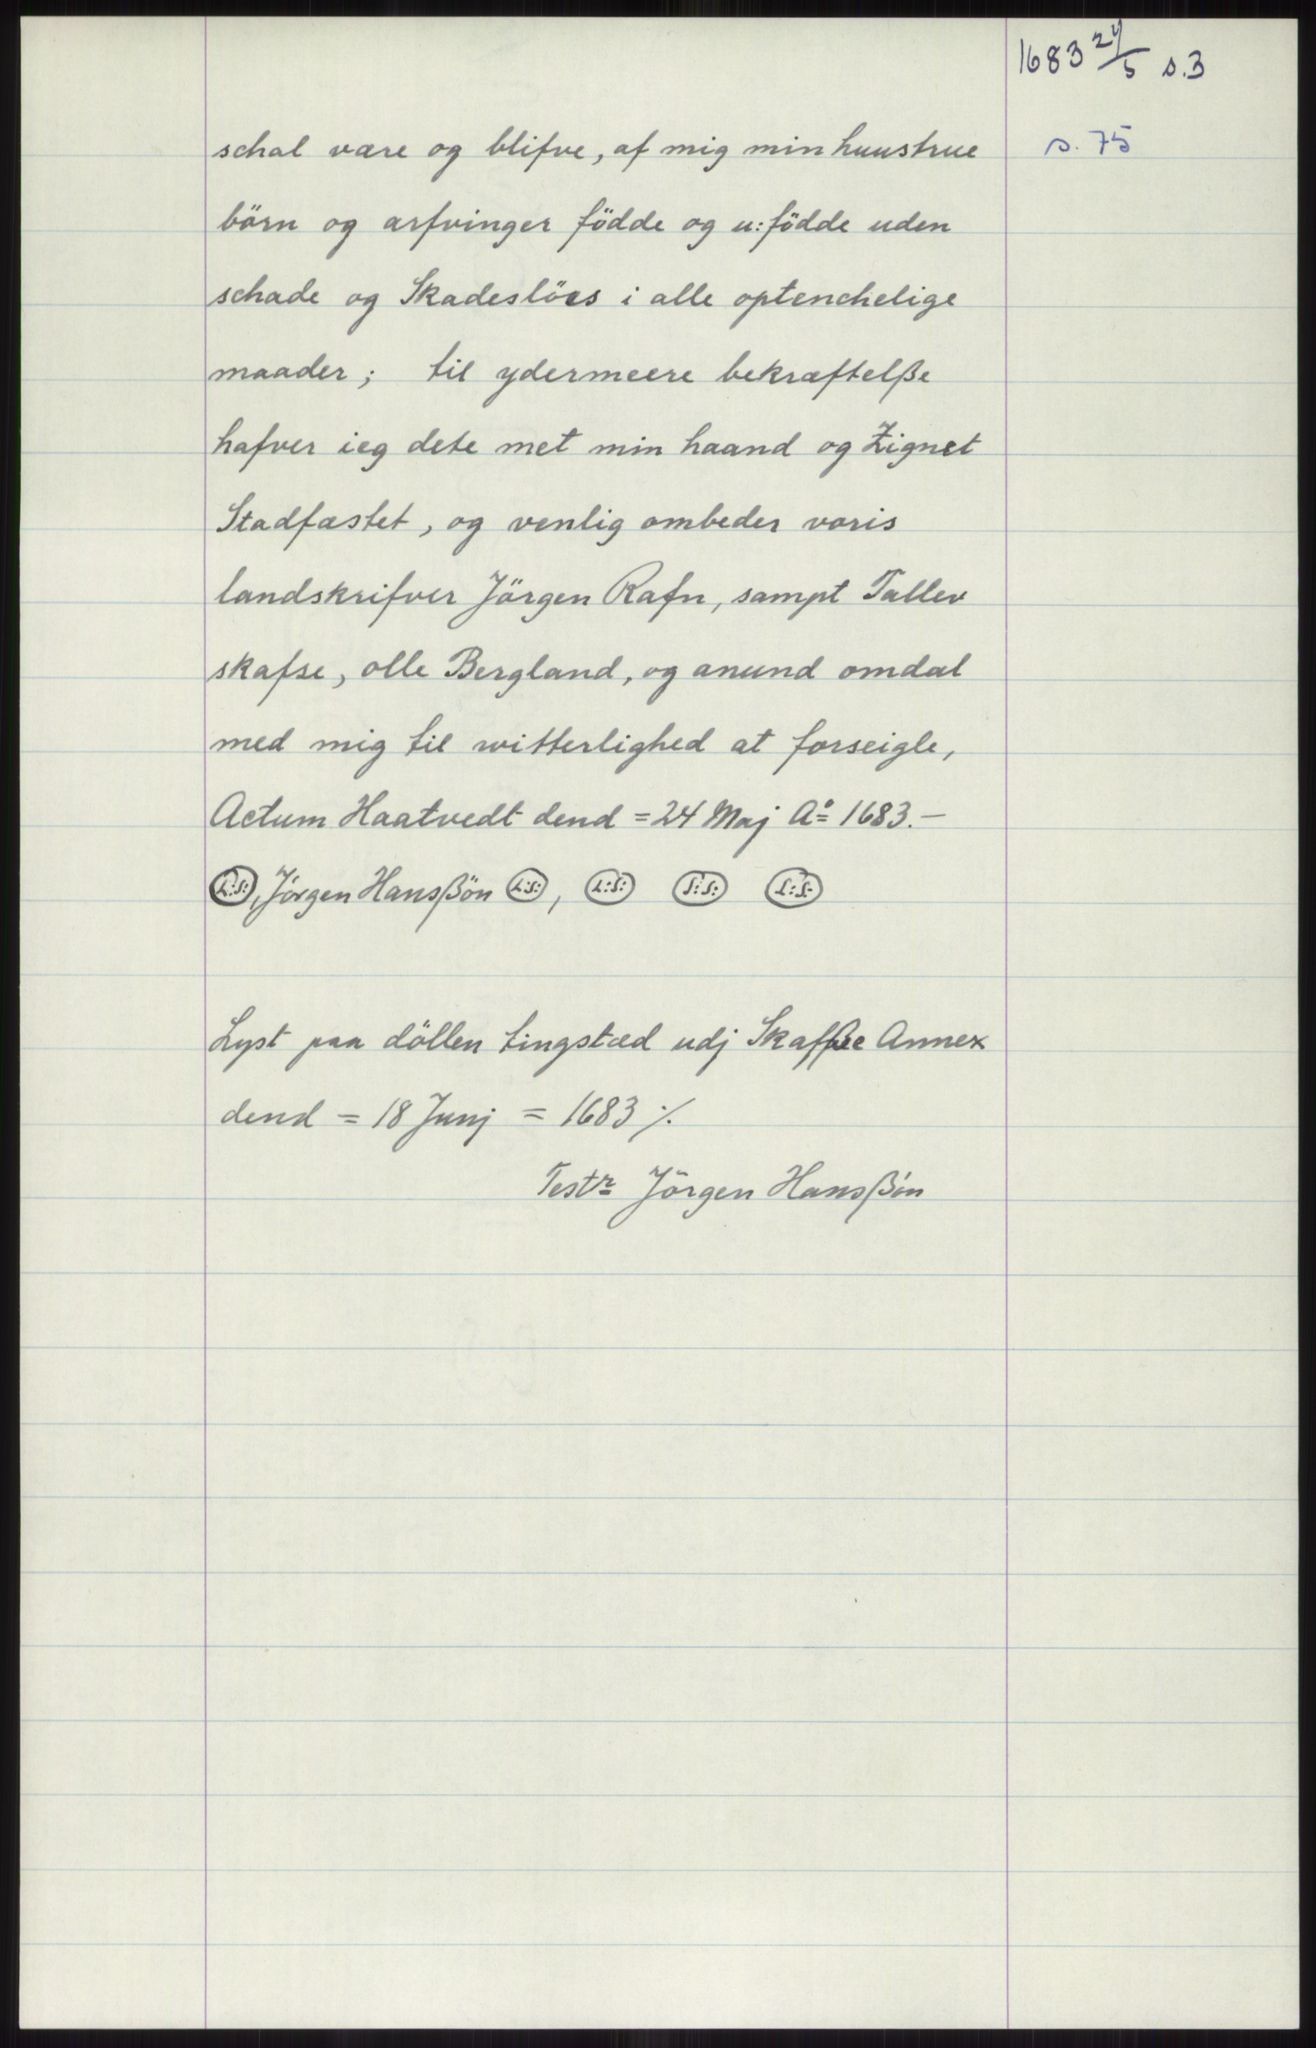 1683 24/5 s.3
s. 75
schal være og blifve, af mig min huustrue
börn og arfvinger födde og u:födde uden
schade og Skadeslöes i alle optenchelige
maader; til ydermeere bekræftelße
hafver ieg dete met min haand og Zignet
Stadfæstet, og venlig ombeder voris
landskrifver Jörgen Rafn, sampt Tallev
skafse, olle Bergland, og anund omdal
med mig til witterlighed at forseigle,
Actum Haatvedt dend = 24 Maj A° = 1683.-
L:S:, Jörgen Hansßön L:S:, L:S: L:S: L:S:
Lyst paa döllen tingstæd udj Skafße Annex
dend = 18 Junj = 1683 ·/.
Testr Jörgen Hansßön